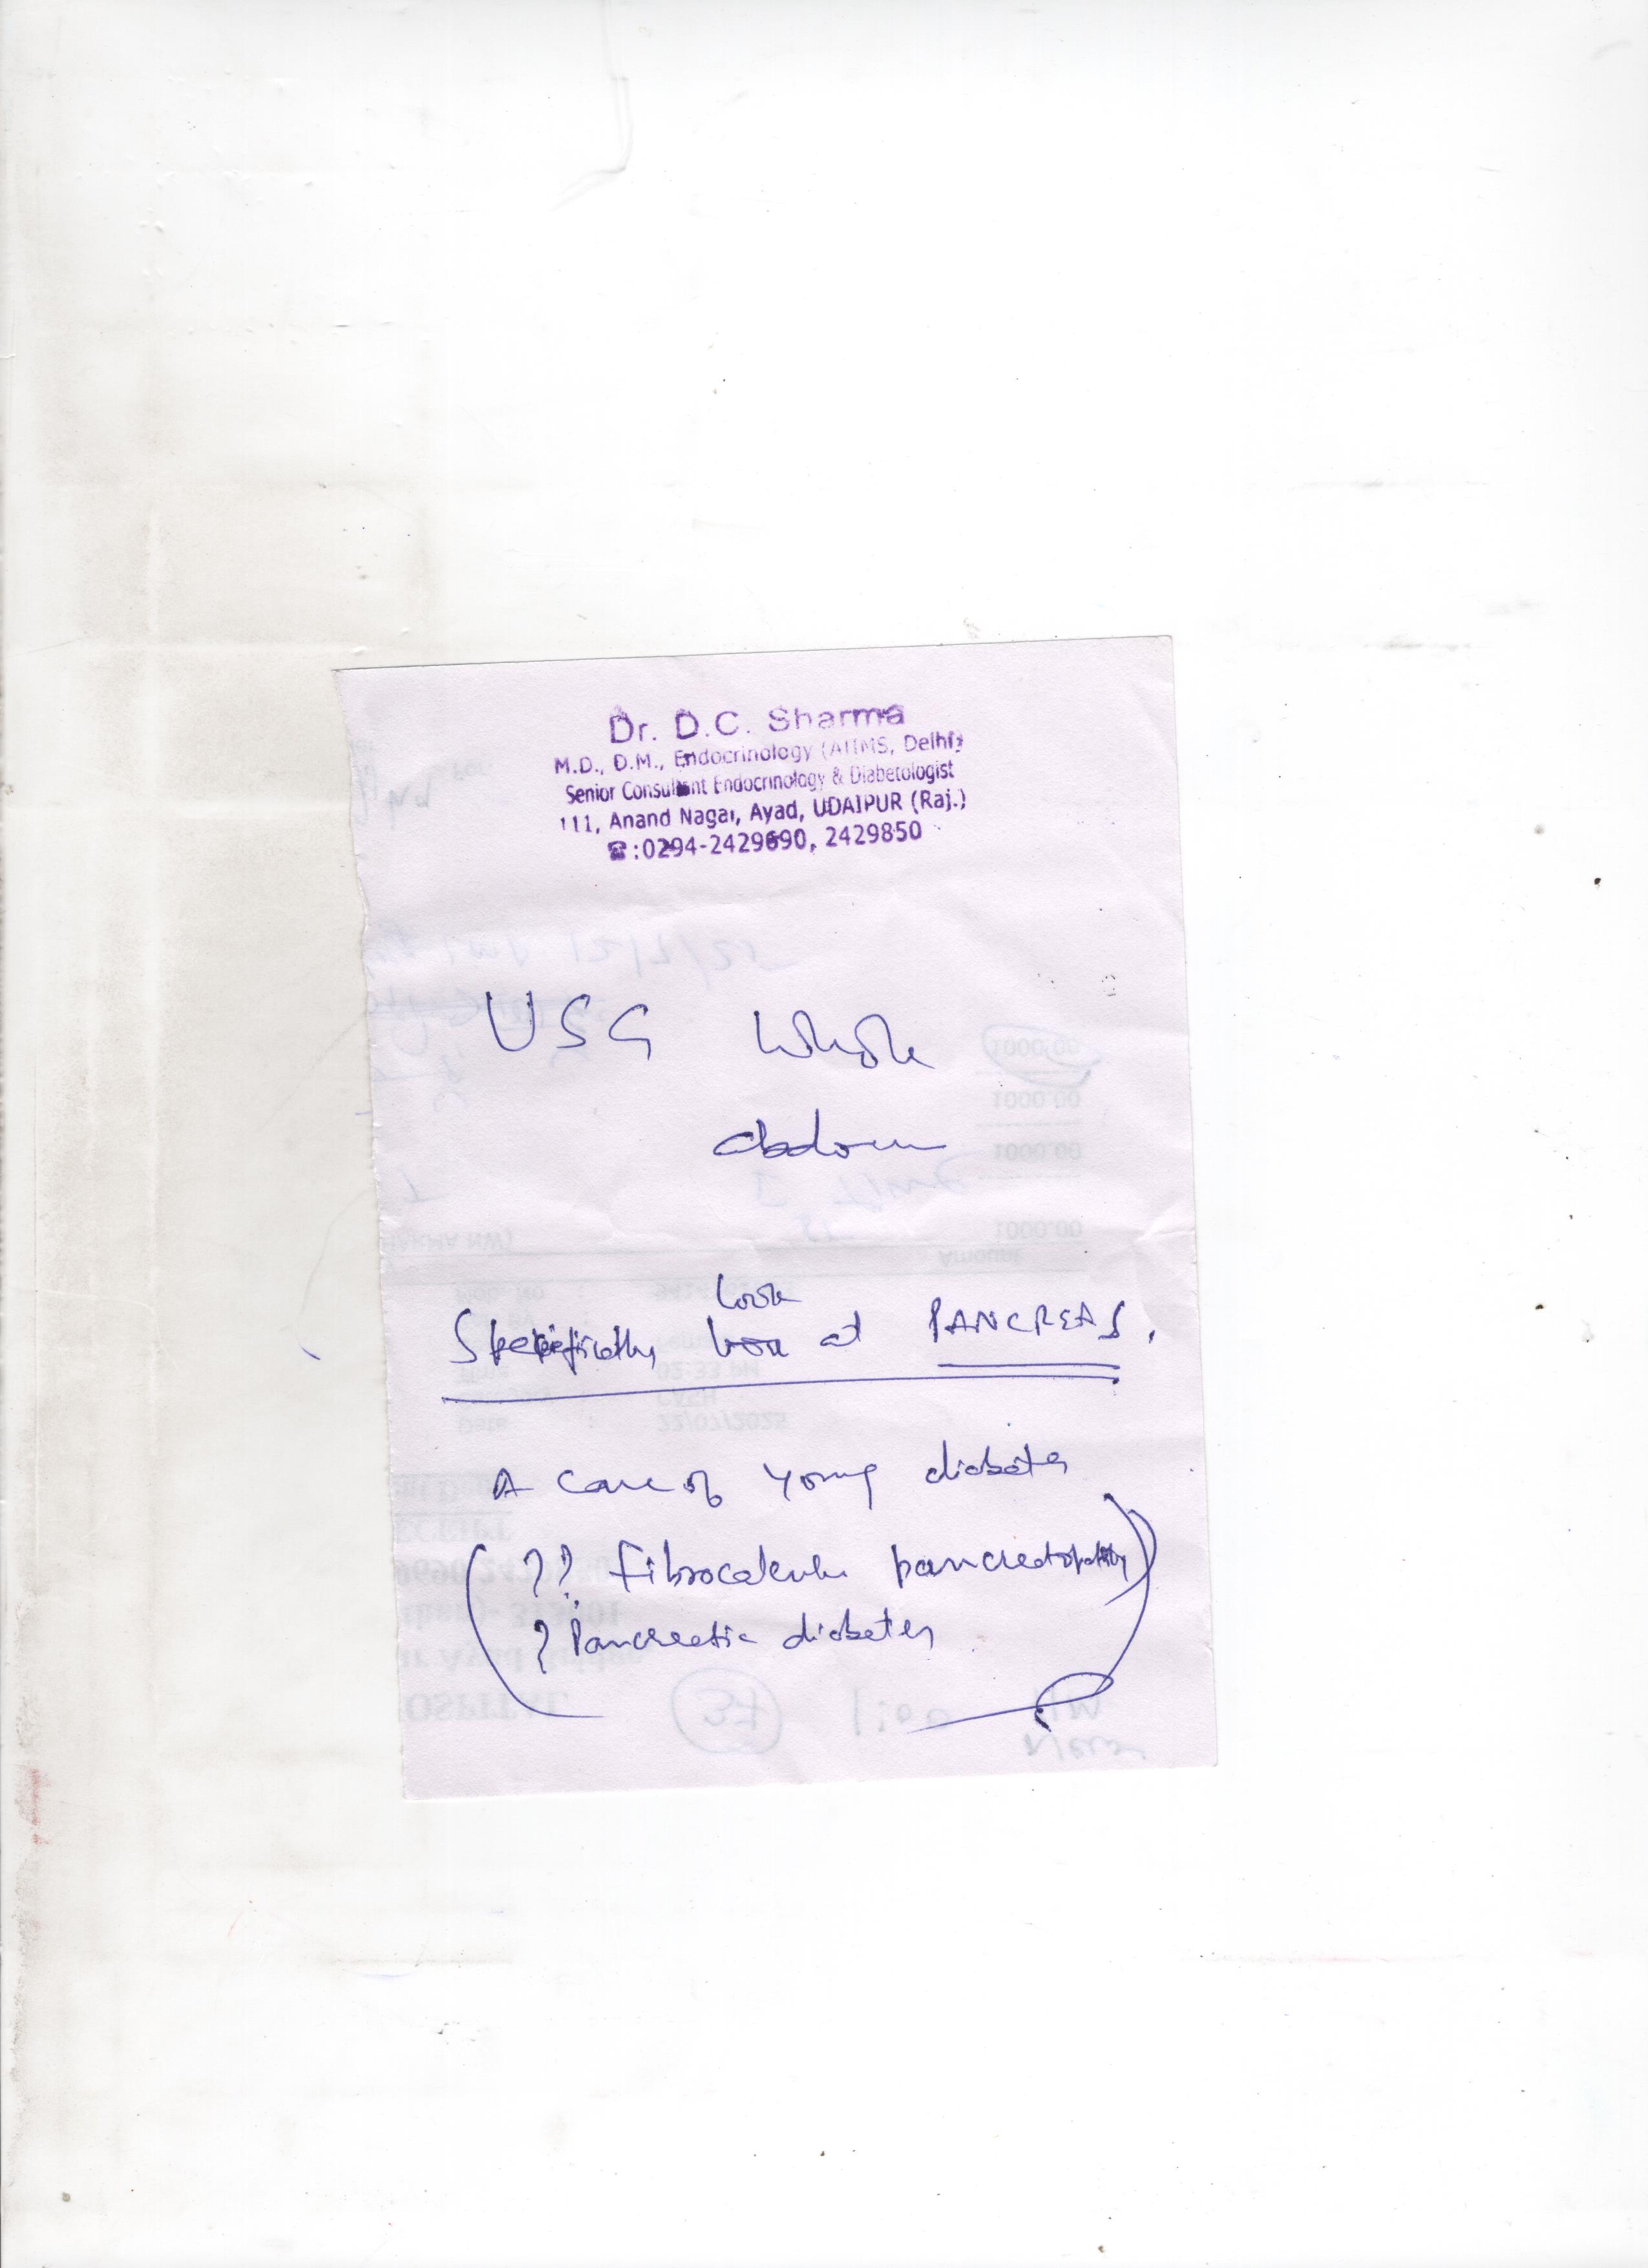 Dr. D.C. Sharma
M.D., D.M., Endocrinology (AIIMS, Delhi)
Senior Consultant Endocrinology & Diabetologist
111, Anand Nagar, Ayad, UDAIPUR (Raj.)
☎:0294-2429690, 2429850
USG Whole
abdomen
look
Specifically look at PANCREAS.
A case of young diabetes
(?? Fibrocalcular pancreatopathy)
? Pancreatic diabetes